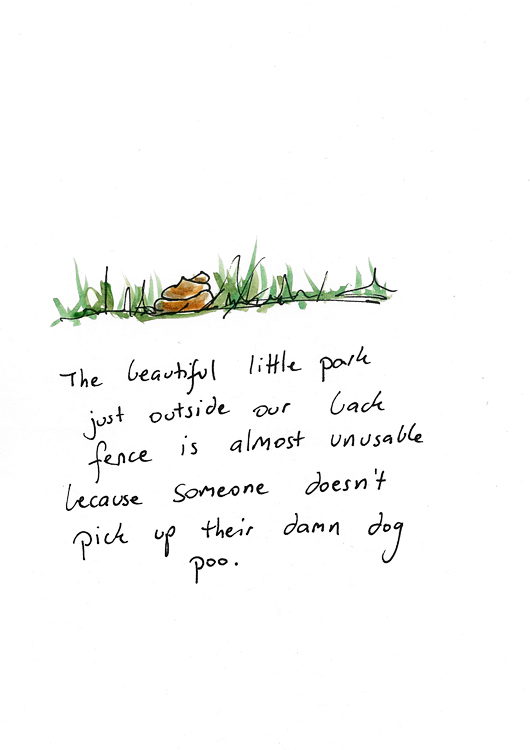 The beautiful little park
just outside our back
fence is almost unusable
because someone doesn't
pick up their damn dog
poo.